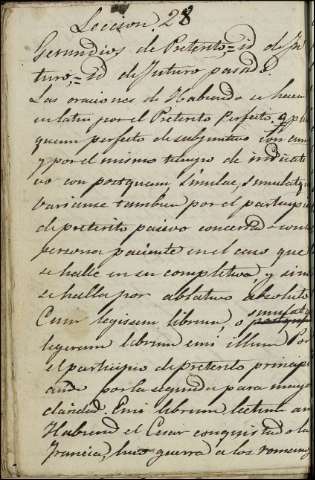 Leccion 28
Gerundios de Preterito, = id de Fu
turo, = id de Futuro pasado.
Las oraciones de Habiendo se hacen
en latin por el Preterito Perfecto, y plus
quam perfecto de subjuntivo con cum
y por el mismo tiempo de indicati
vo con postquam simulac, simulatq
Varianse tambien por el participio
de preterito pasivo concertado con la
persona paciente en el caso que
se halle en su completivo, y si no
se halla por ablativo absoluto
Cum legissem librum, o simulatq
legeram librum emi illum Por
el participio de preterito principi
ando por la segunda para mayor
claridad. Emi librum lectum an
Habiendo el Cesar conquistado la
Francia, hizo guerra a los romanos